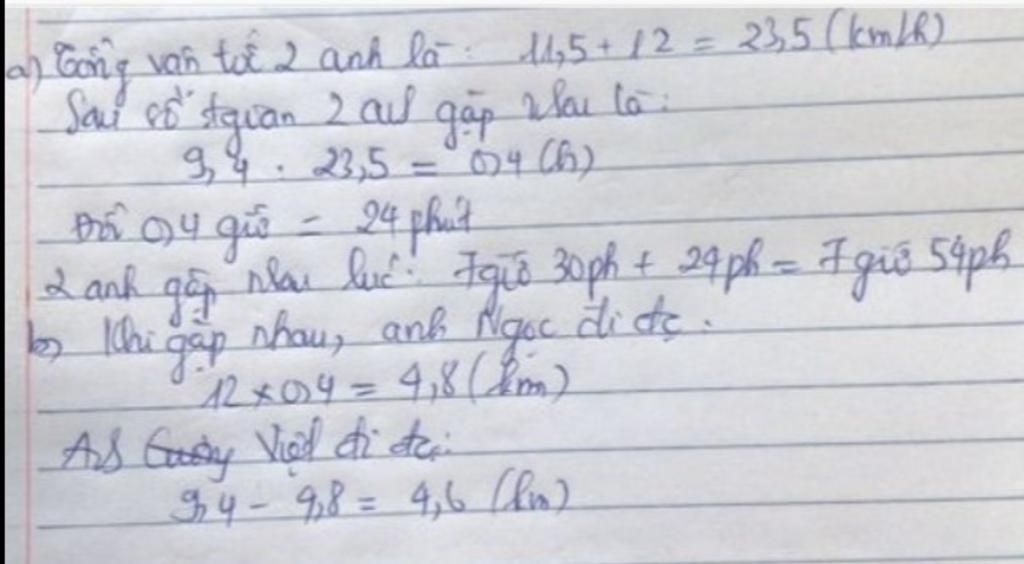 a) Tổng vận tốc 2 anh là: 11,5 + 12 = 23,5 (km/h)
Sau số tgian 2 anh gặp nhau là:
9,4 : 23,5 = 0,4 (h)
Đổi 0,4 giờ = 24 phút
2 anh gặp nhau lúc: 7giờ 30ph + 24ph = 7 giờ 54ph
b) Khi gặp nhau, anh Ngọc đi đc:
12 x 0,4 = 4,8 (km)
Anh Việt đi đc:
9,4 - 4,8 = 4,6 (km)